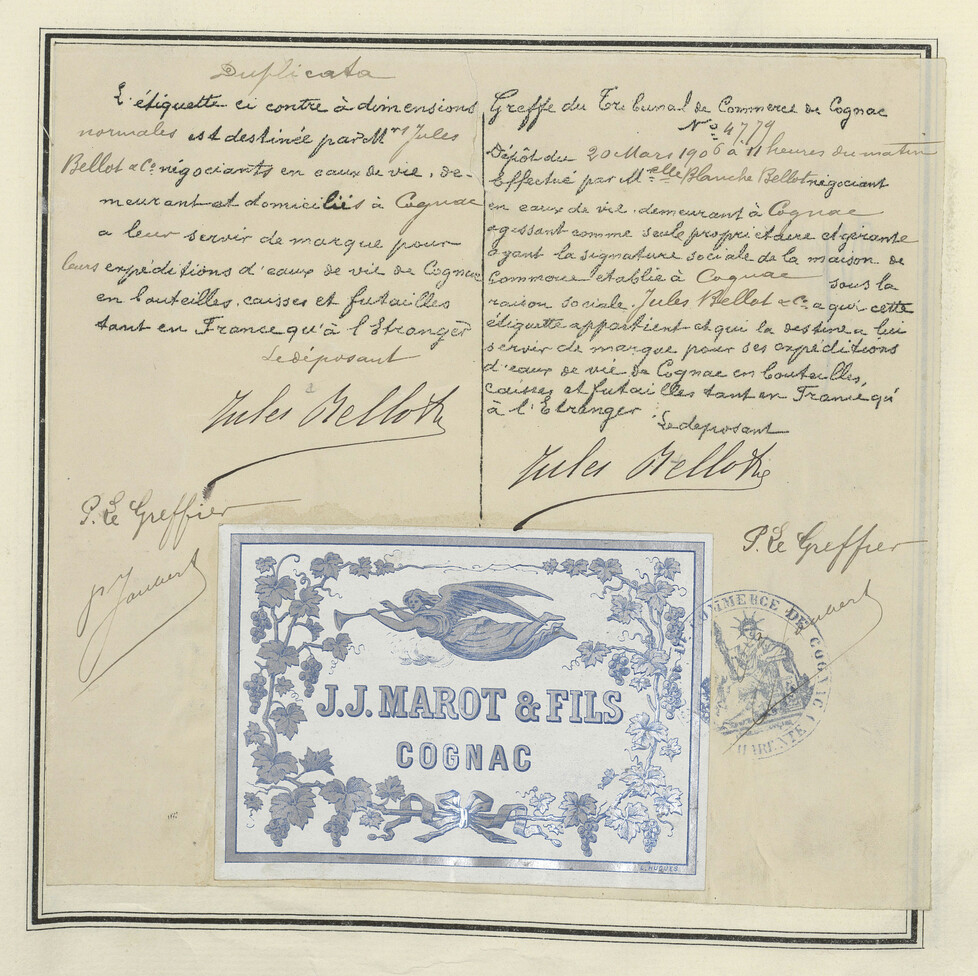 Duplicata
L'étiquette ci contre à dimensions
normales est destinée par Mrs Jules
Bellot & Co négociants en eaux de vie, de-
meurant et domiciliés à Cognac
a leur servir de marque pour
leurs expéditions d'eaux de vie de Cognac
en bouteilles, caisses et futailles
tant en France qu'à l'Etranger
Le déposant
Jules Bellot & Co
P. Le Greffier
Greffe du Tribunal de Commerce de Cognac
No 4779
Dépôt du 20 Mars 1906 à 11 heures du matin
Effectué par Melle Blanche Bellot négociant
en eaux de vie, demeurant à Cognac
agissant comme seule propriétaire et gérante
ayant la signature sociale de la maison de
Commerce établie à Cognac sous la
raison sociale, Jules Bellot & Co a qui cette
étiquette appartient et qui la destine a lui
servir de marque pour ses expéditions
d'eaux de vie de Cognac en bouteilles,
caisses et futailles tant en France qu'
à l'Etranger
Le deposant
Jules Bellot & Co
P. Le Greffier
J.J. MAROT & FILS
COGNAC
L. HUGUES
COMMERCE DE COGNAC